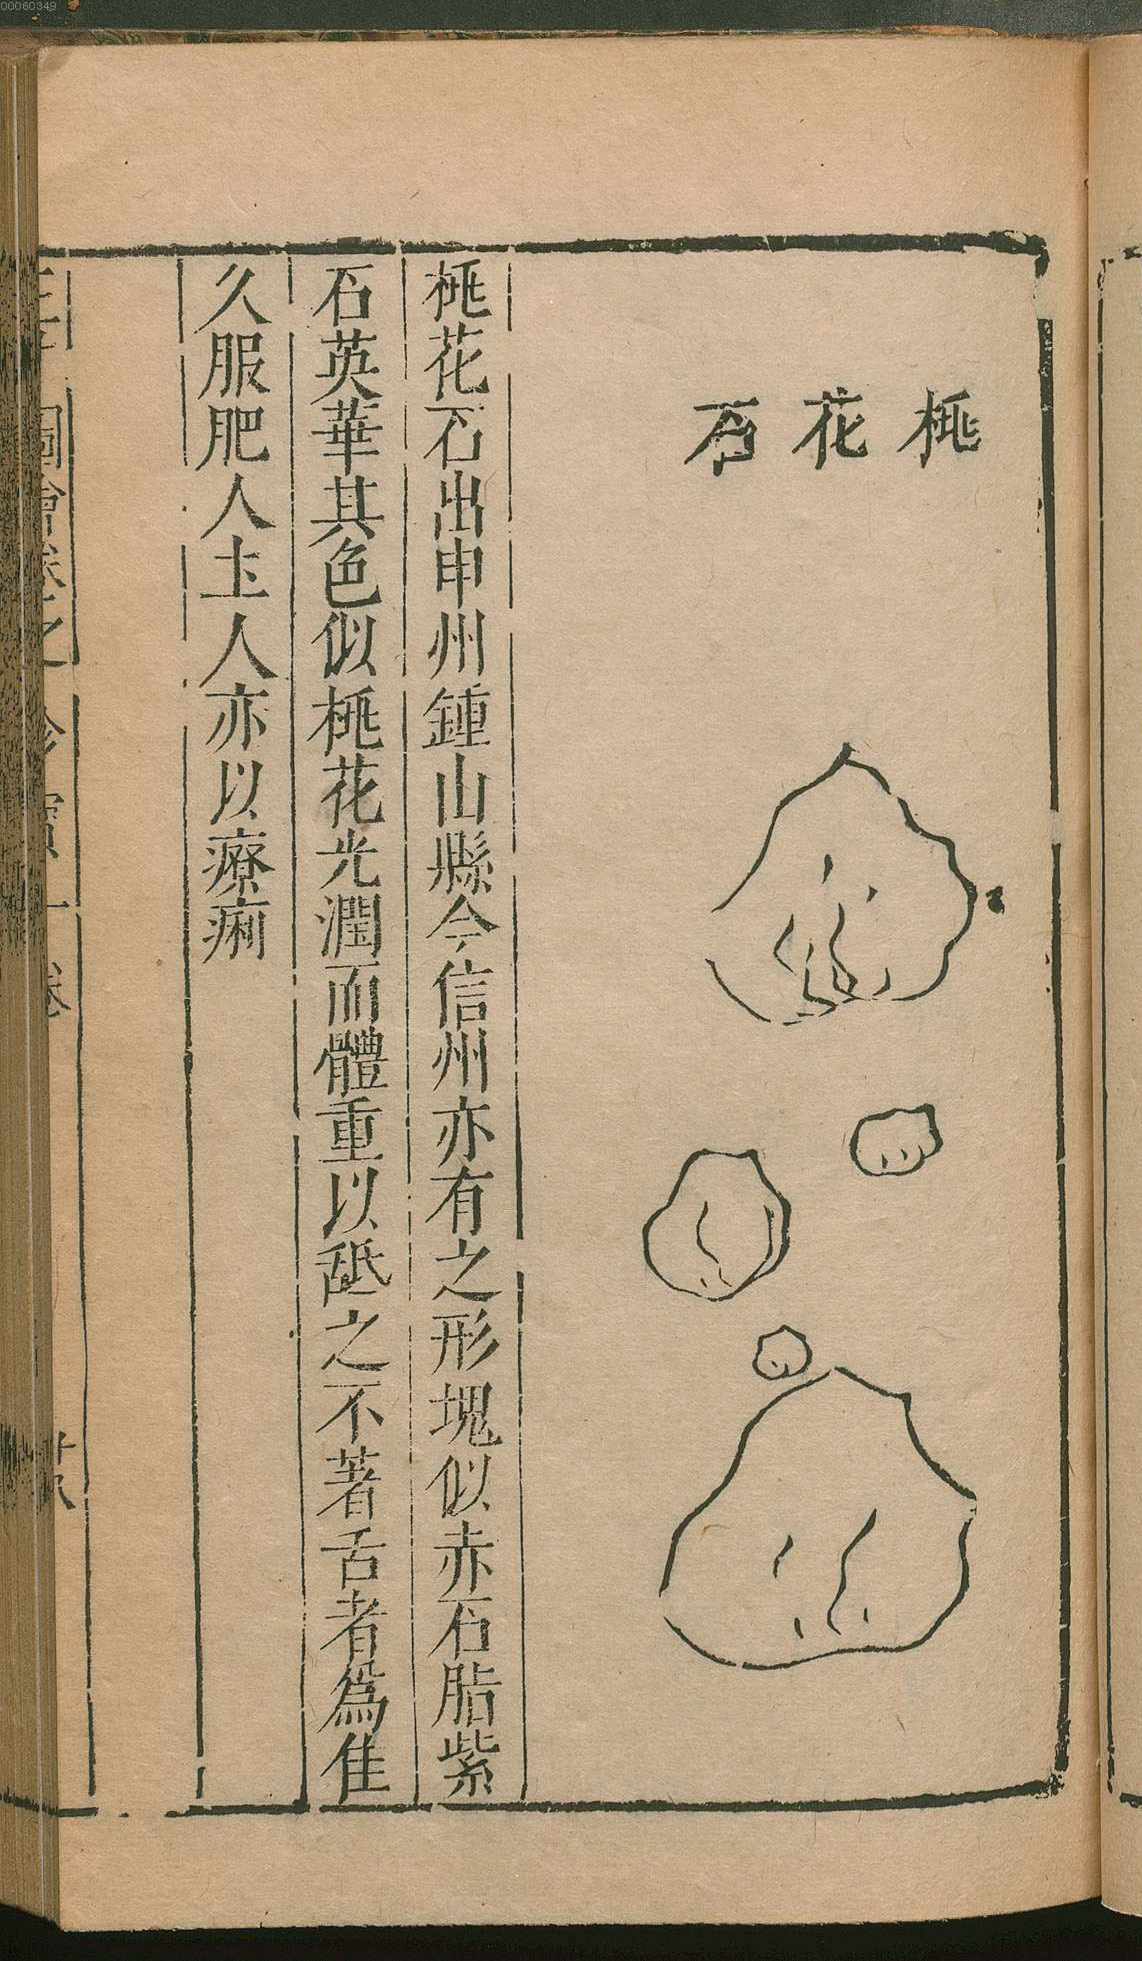 00060349
桃花石
桃花石出申州鍾山縣今信州亦有之形塊似赤石脂紫
石英華其色似桃花光潤而體重以舐之不著舌者爲佳
久服肥人土人亦以療痢
圖會卷之 珍寶一卷